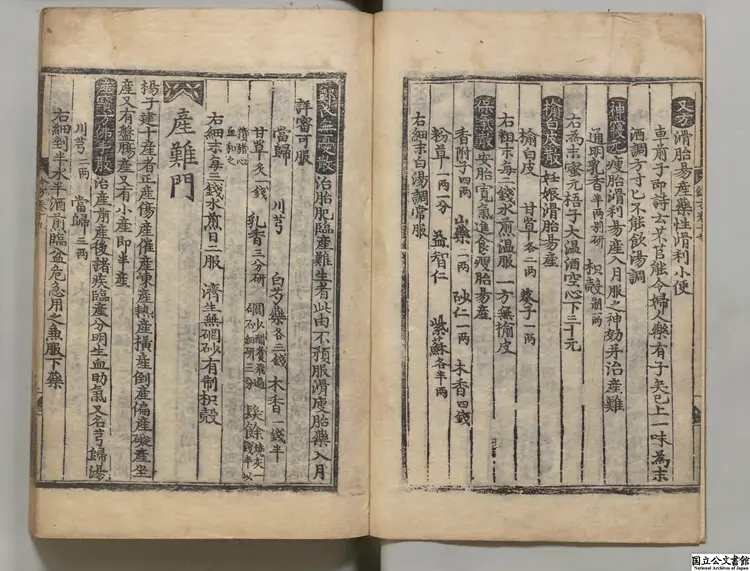 又方 滑胎易産藥性滑利小便
車前子即詩云芣苢能令婦人樂有子矣已上一味為末
酒調方寸匕不能飲湯調
神寢元瘦胎滑利易産入月服之神効并治産難
通明乳香半兩別研 枳殼一兩
右為末蜜元梧子大温酒空心下三十元
榆白皮散妊娠滑胎易産
榆白皮 甘草各二兩 葵子一兩
右粗末每二錢水煎温服一方無榆皮
保氣散安胎寬氣進食瘦胎易産
香附子四兩 山藥二兩 砂仁一兩 木香四錢
粉草一兩一分 益智仁 紫蘇各半兩
右細末白湯調常服
治胎肥臨産難生者此由不預服滑瘦胎藥入月
詳審可服
當歸 川芎 白芍藥各三錢 木香一錢半
甘草炙一錢 乳香三分研 硇砂 髮餘
猪心血和之
右細末每三錢水煎日二服 濟生無硇砂有制枳殼
産難門
楊子建十産者正産傷産催産凍産熱産橫産倒産偏産礙産坐
産又有盤腸産又有小産即半産
産寶方佛手散治産前産後諸疾臨産分明生血助氣又名芎歸湯
川芎二兩 當歸三兩
右細剉半水半酒煎臨盆危急用之兼服下藥
国立公文書館
National Archives of Japan